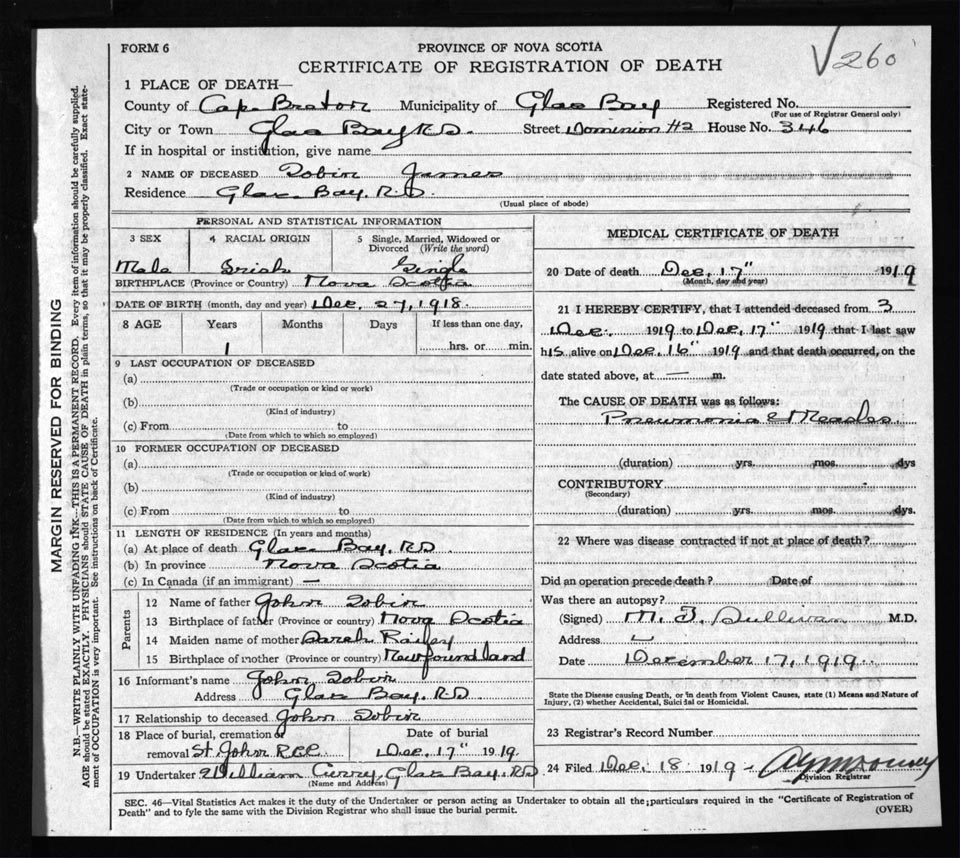 FORM 6
PROVINCE OF NOVA SCOTIA
CERTIFICATE OF REGISTRATION OF DEATH
√260
1 PLACE OF DEATH—
County of Cape Breton Municipality of Glace Bay Registered No.
(For use of Registrar General only)
City or Town Glace Bay R.D. Street Dominion #2 House No. 346
If in hospital or institution, give name
2 NAME OF DECEASED Tobin James
Residence Glace Bay. R.D.
(Usual place of abode)
PERSONAL AND STATISTICAL INFORMATION
3 SEX 4 RACIAL ORIGIN 5 Single, Married, Widowed or Divorced (Write the word)
Male Irish Single
BIRTHPLACE (Province or Country) Nova Scotia
DATE OF BIRTH (month, day and year) Dec. 27, 1918.
8 AGE Years Months Days If less than one day,
1 hrs. or min.
9 LAST OCCUPATION OF DECEASED
(a)
(Trade or occupation or kind or work)
(b)
(Kind of industry)
(c) From to
(Date from which to which so employed)
10 FORMER OCCUPATION OF DECEASED
(a)
(Trade or occupation or kind of work)
(b)
(Kind of industry)
(c) From to
(Date from which to which so employed)
11 LENGTH OF RESIDENCE (In years and months)
(a) At place of death Glace Bay. R.D.
(b) In province Nova Scotia
(c) In Canada (if an immigrant) —
Parents
12 Name of father John Tobin
13 Birthplace of father (Province or country) Nova Scotia
14 Maiden name of mother Sarah
15 Birthplace of mother (Province or country) Newfoundland
16 Informant's name John Tobin
Address Glace Bay. R.D.
17 Relationship to deceased John Tobin
18 Place of burial, cremation or removal St. John R.C.C. Date of burial Dec. 17" 1919.
19 Undertaker William Curry, Glace Bay. R.D.
(Name and Address)
MEDICAL CERTIFICATE OF DEATH
20 Date of death Dec. 17" 1919
(Month, day and year)
21 I HEREBY CERTIFY, that I attended deceased from 3
Dec. 1919 to Dec. 17" 1919 that I last saw
his alive on Dec. 16" 1919 and that death occurred, on the
date stated above, at — m.
The CAUSE OF DEATH was as follows:
Pneumonia & Measles
(duration) yrs. mos. dys
CONTRIBUTORY
(Secondary)
(duration) yrs. mos. dys.
22 Where was disease contracted if not at place of death?
Did an operation precede death? Date of
Was there an autopsy?
(Signed) M. T. Sullivan M.D.
Address
Date December 17, 1919.
State the Disease causing Death, or in death from Violent Causes, state (1) Means and Nature of
Injury, (2) whether Accidental, Suicidal or Homicidal.
23 Registrar's Record Number
24 Filed Dec. 18 1919 —
Division Registrar
SEC. 46—Vital Statistics Act makes it the duty of the Undertaker or person acting as Undertaker to obtain all the particulars required in the "Certificate of Registration of
Death" and to fyle the same with the Division Registrar who shall issue the burial permit.
(OVER)
MARGIN RESERVED FOR BINDING
N.B.—WRITE PLAINLY WITH UNFADING INK—THIS IS A PERMANENT RECORD. Every item of information should be carefully supplied.
AGE should be stated EXACTLY. PHYSICIANS should STATE CAUSE OF DEATH in plain terms, so that it may be properly classified. Exact state-
ment of OCCUPATION is very important. See instructions on back of Certificate.